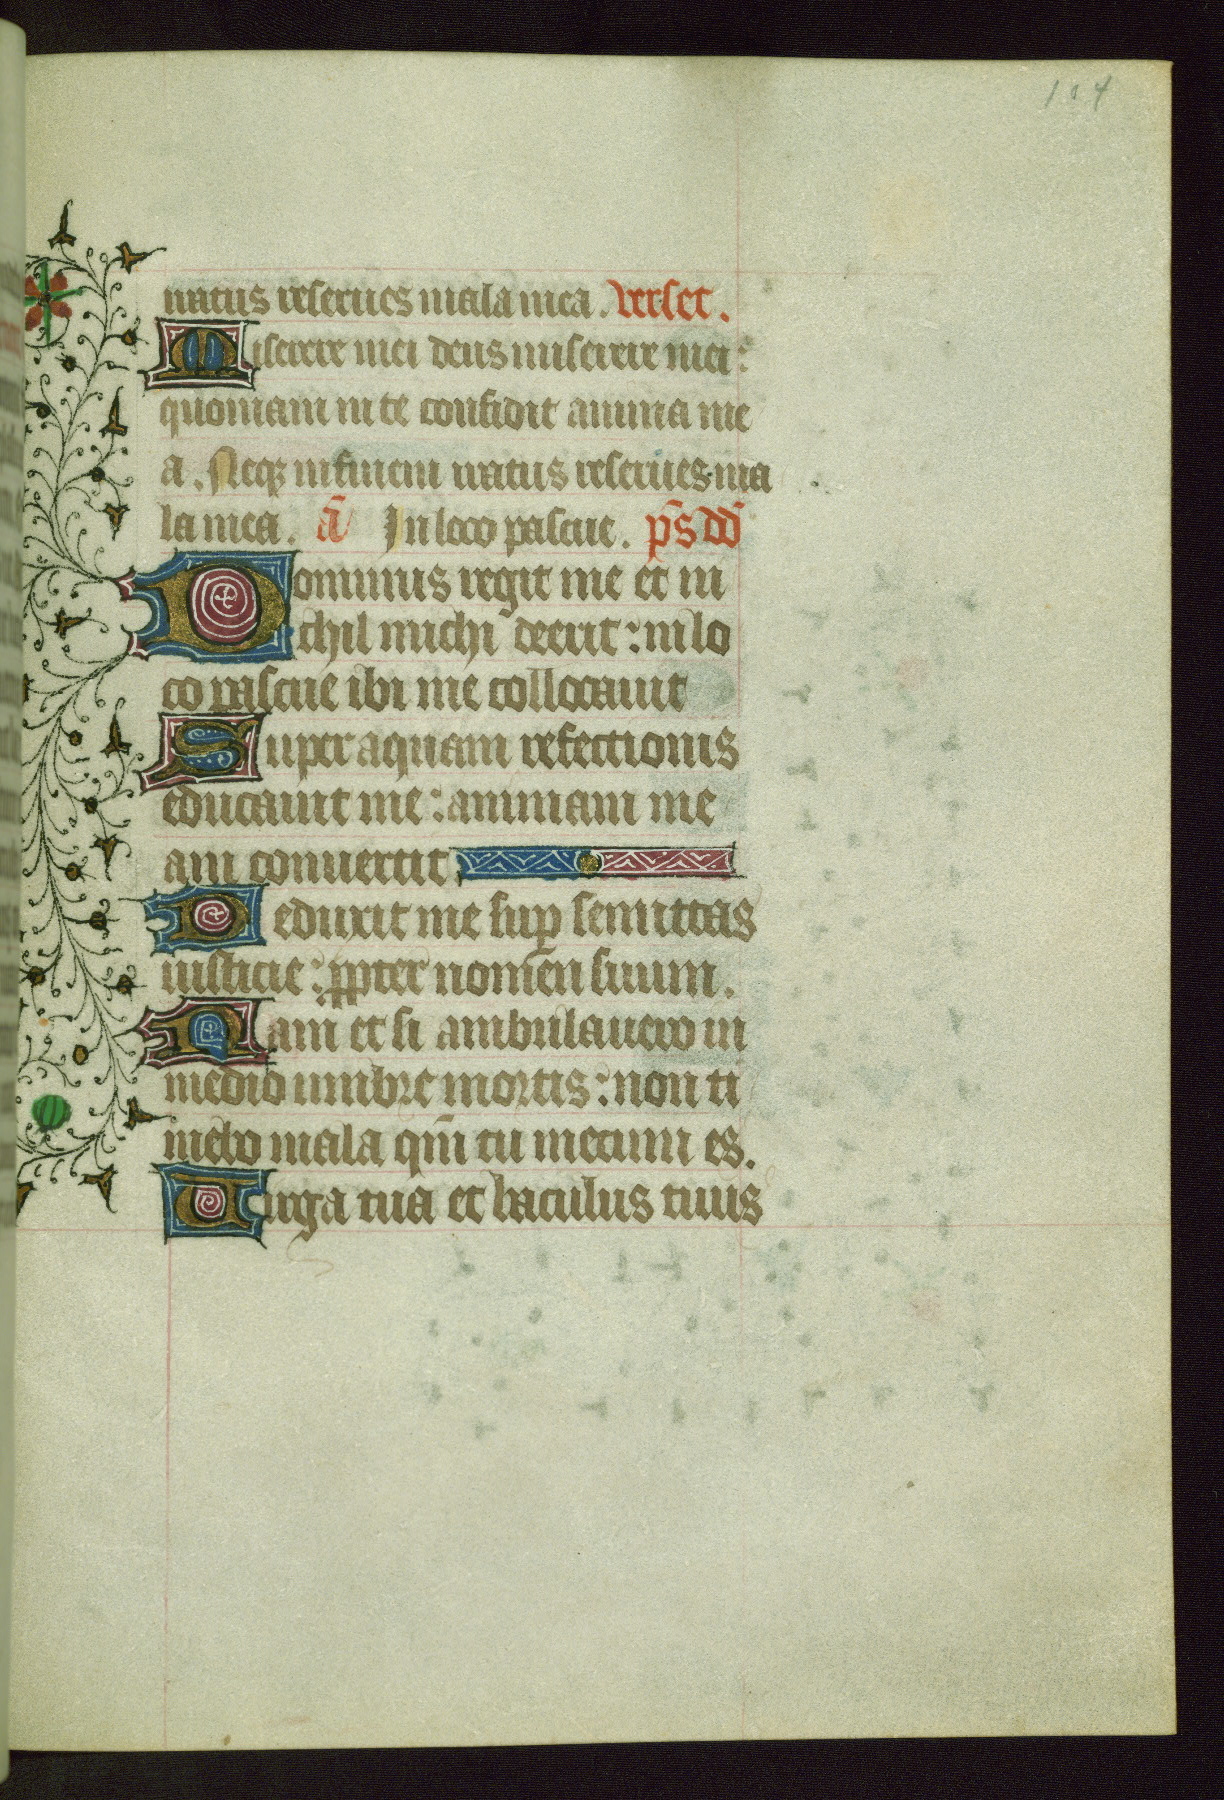 114
iratus reserues mala mea. Verset.
Miserere mei deus miserere mei:
quoniam in te confidit anima me
a. Neq₃ in finem iratus reserues ma
la mea. a᷒ In loco pascue. ps̄ dd̄
Dominus regit me et ni
chil michi deerit: in lo
co pascue ibi me collocauit
Super aquam refectionis
educauit me: animam me
am conuertit
Deduxit me sup̱ semittas
iusticie: p̱pter nomen suum.
Nam et si ambulauero in
medio umbre mortis: non ti
mebo mala qm̄ tu mecum es.
Uirga tua et baculus tuus